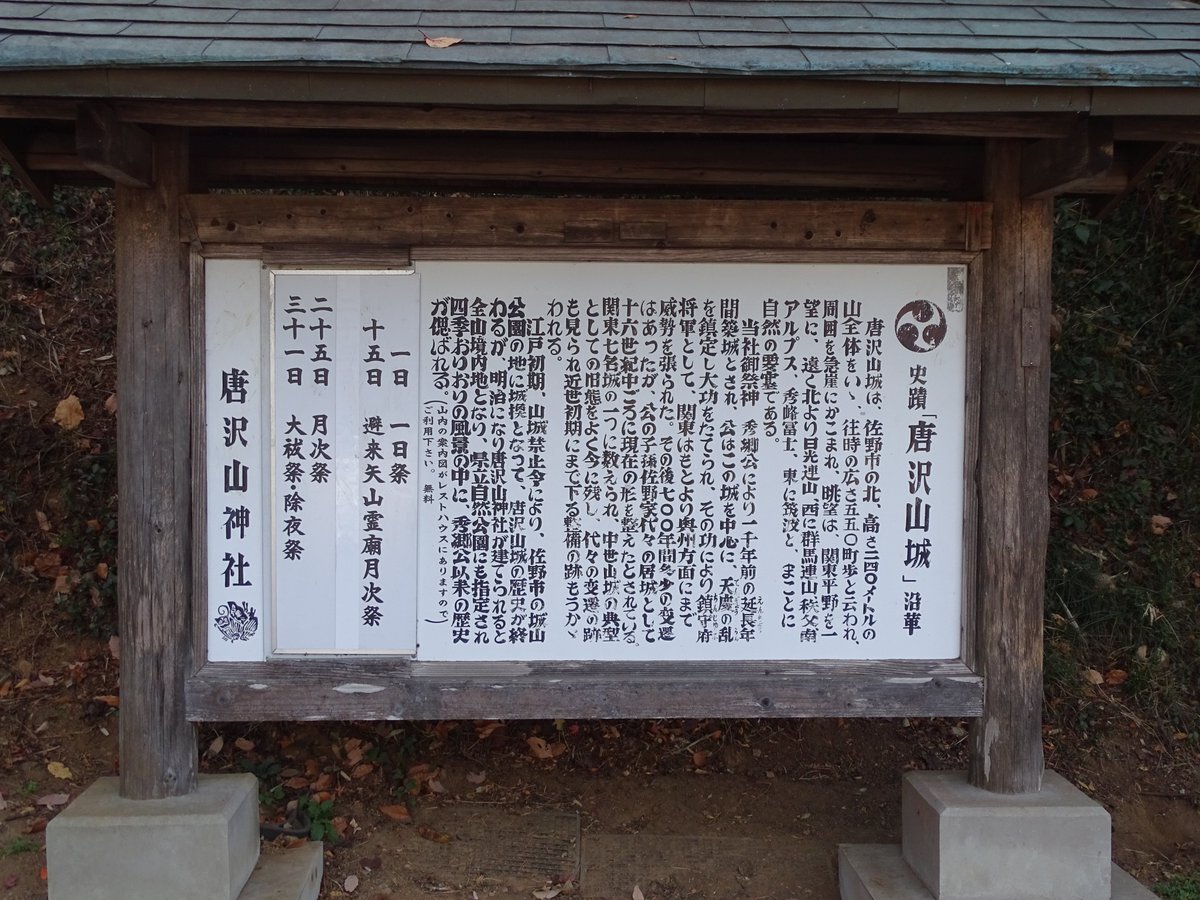 史蹟「唐沢山城」沿革
唐沢山城は、佐野市の北、高さ二四〇メートルの
山全体をいゝ、往時の広さ五五〇町歩と云われ、
周囲を急崖にかこまれ、眺望は、関東平野を一
望に、遠く北より日光連山、西に群馬連山、秩父、南
アルプス、秀峰富士、東に筑波と、まことに
自然の要害である。
当社御祭神 秀郷公により一千年前の延長年
間築城とされ、公はこの城を中心に、天慶の乱
を鎮定し大功をたてられ、その功により鎮守府
将軍として、関東はもとより奥州方面にまで
威勢を張られた。その後七〇〇年間多少の変遷
はあったが、公の子孫佐野家代々の居城として
十六世紀中ごろに現在の形を整えたとされている。
関東七名城の一つに数えられ、中世山城の典型
としての旧態をよく今に残し、代々の変遷の跡
も見られ近世初期にまで下る軽桶の跡もうかゞ
われる。
江戸初期、山城禁止令により、佐野市の城山
公園の地に城換となって、唐沢山城の歴史が終
わるが、明治になり唐沢山神社が建てられると
全山境内地となり、県立自然公園にも指定され
四季おりおりの風景の中に、秀郷公以来の歴史
が偲ばれる。(山内の案内図がレストハウスにありますので)
ご利用下さい。無料
一日 一日祭
十五日 避来矢山霊廟月次祭
二十五日 月次祭
三十一日 大祓祭除夜祭
唐沢山神社